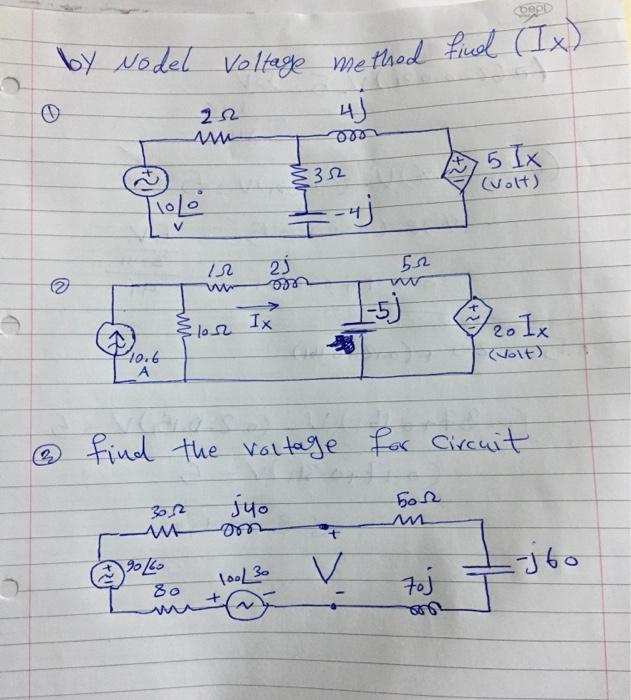 by Nodel Voltage method find (Ix)
① 2Ω 4j
3Ω 5 Ix
(volt)
10∠0°
v
-4j
② 1Ω 2j 5Ω
10Ω Ix -5j
10.6
A
20 Ix
(volt)
③ find the voltage for circuit
30Ω j40 50Ω
90∠60 100∠30 V -j60
80 70j